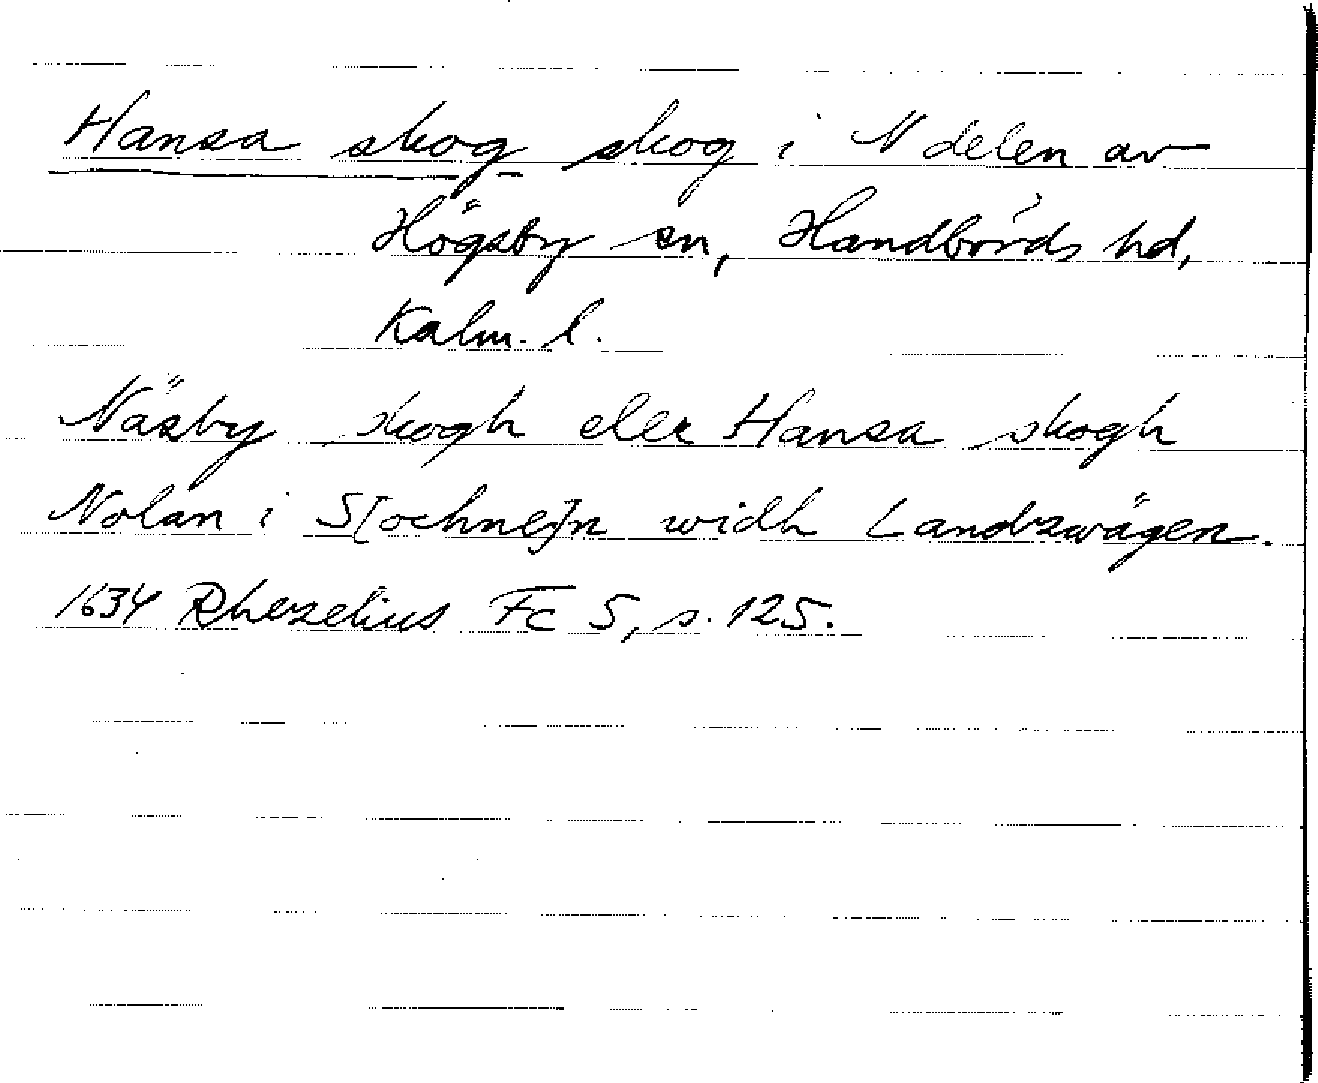 Hansa skog skog i N delen av
Högsby sn, Handbörds hd,
Kalm. l.
Näsby skogh eller Hansa skogh
Nolan i S[ochne]n widh Landzwägen.
1634 Rhezelius Fc 5, s. 125.